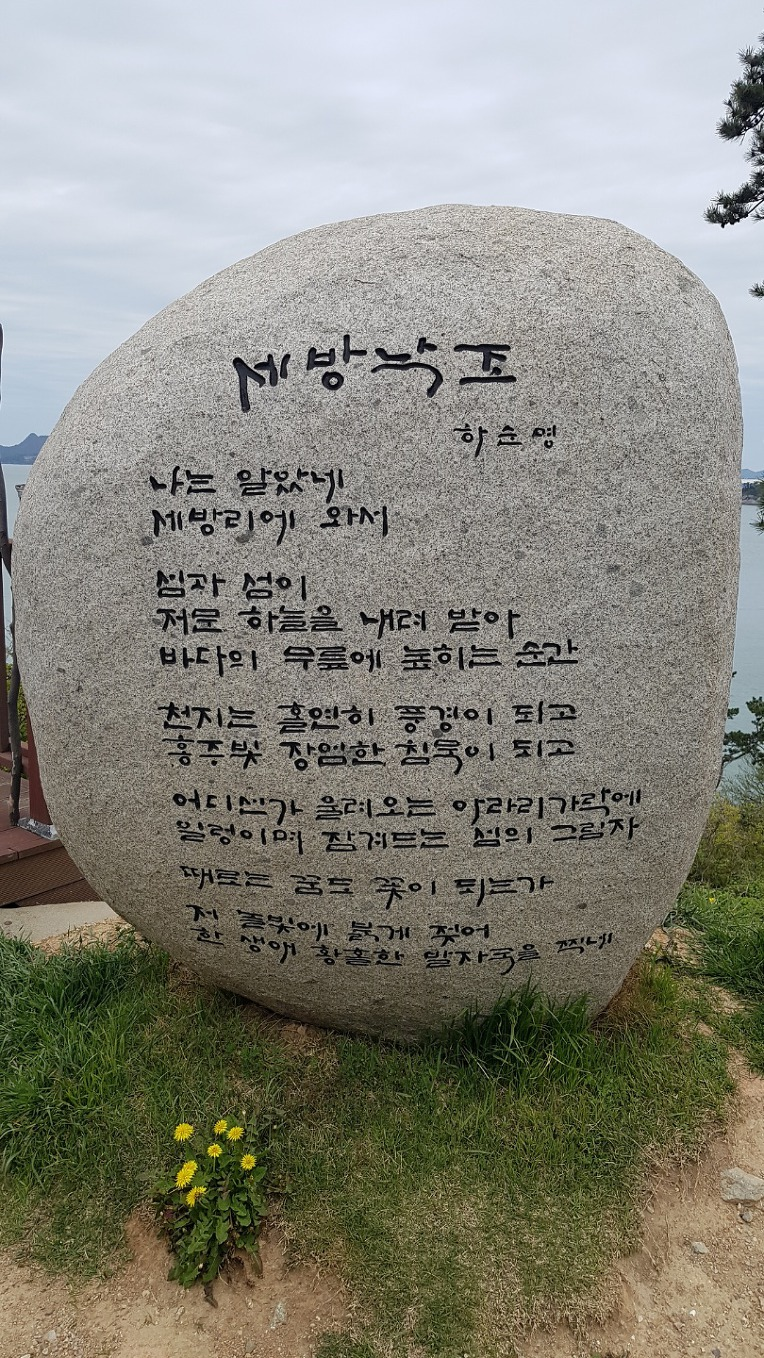 세방낙조
하순명
나는 알았네
세방리에 와서
섬과 섬이
저문 하늘을 내려 받아
바다의 무릎에 눕히는 순간
천지는 홀연히 풍경이 되고
홍주빛 장엄한 침묵이 되고
어디선가 울려오는 아라리가락에
일렁이며 잠겨드는 섬의 그림자
때로는 꿈도 꽃이 되는가
저 놀빛에 붉게 젖어
한 생애 황홀한 발자국을 찍네